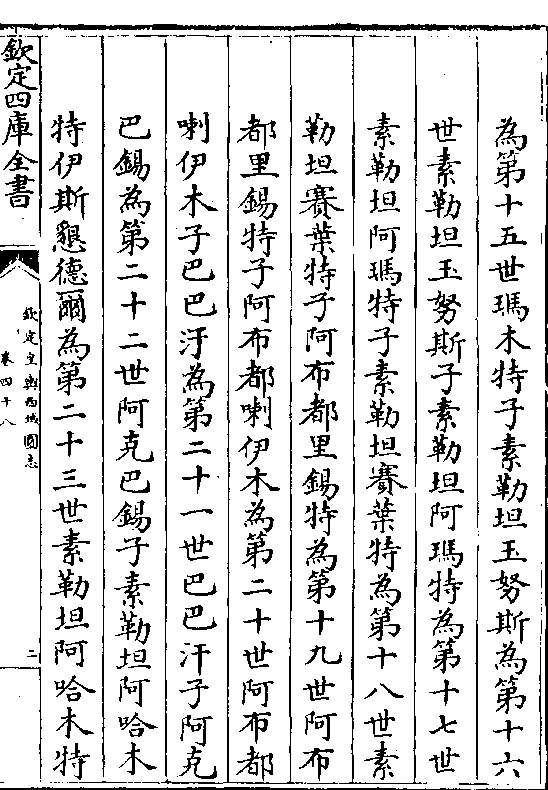 為第十五世瑪木特子素勒坦玉努斯為第十六
世素勒坦玉努斯子素勒坦阿瑪特為第十七世
素勒坦阿瑪特子素勒坦賽葉特為第十八世素
勒坦賽葉特子阿布都里錫特為第十九世阿布
都里錫特子阿布都喇伊木為第二十世阿布都
喇伊木子巴巴汗為第二十一世巴巴汗子阿克
巴錫為第二十二世阿克巴錫子素勒坦阿哈木
特伊斯懇德爾為第二十三世素勒坦阿哈木特
欽定四庫全書
欽定皇輿西域圖志
卷四十八
二